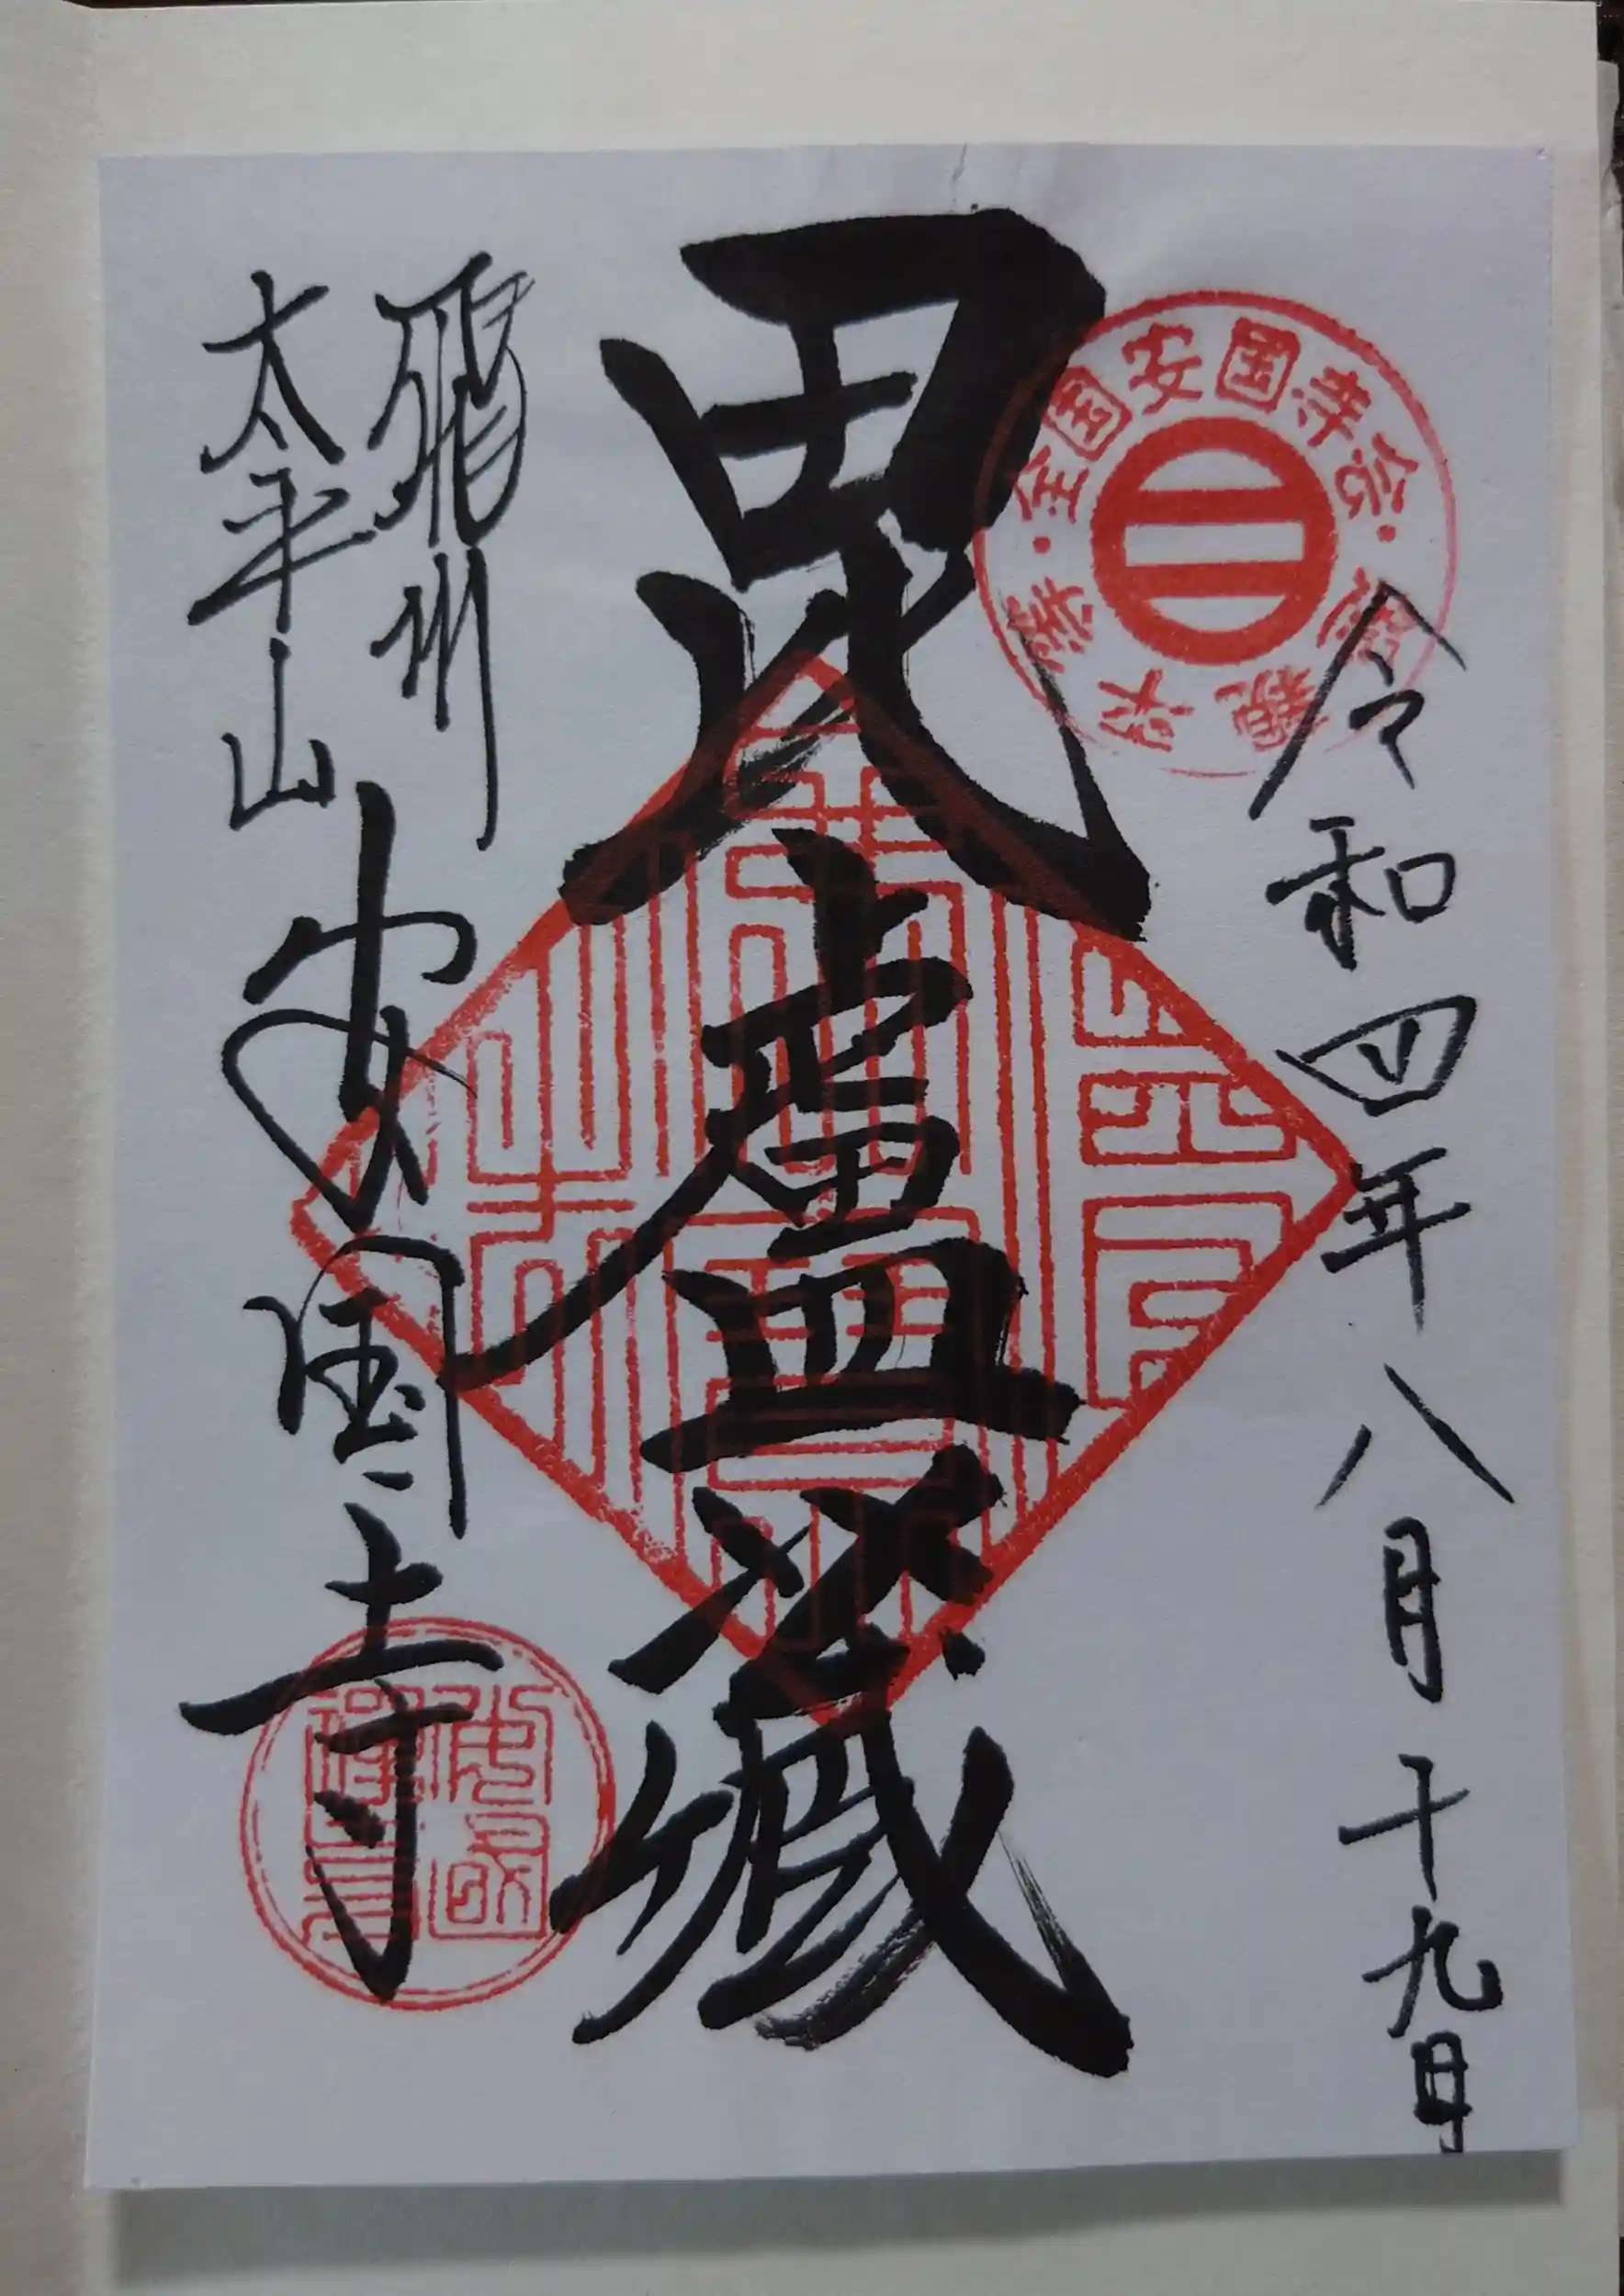 令和四年八月十九日
全国安国寺会
毘盧蔵
飛州
太平山
安国寺